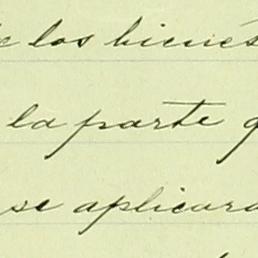 de los bienes
la parte q
se aplicara